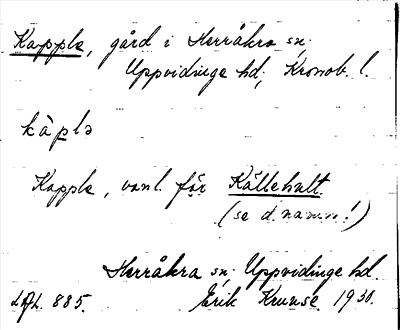 Kappla, gård i Herråkra sn;
Uppvidinge hd; Kronob. l.
kàplə
Kappla, vanl. för Källehult
(se d. namn!)
Herråkra sn; Uppvidinge hd
LAL. 885. Erik Kruuse 1930.